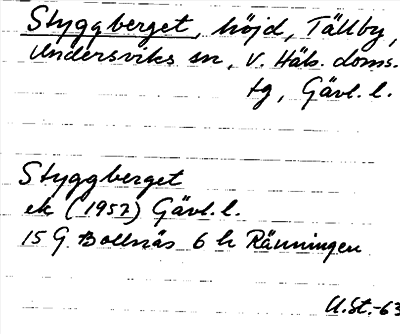 Styggberget, höjd, Tällby,
Undersviks sn, V. Häls. doms.
tg, Gävl. l.
Styggberget
ek (1957) Gävl. l.
15 G Bollnäs 6 h Ränningen
U.St.-63